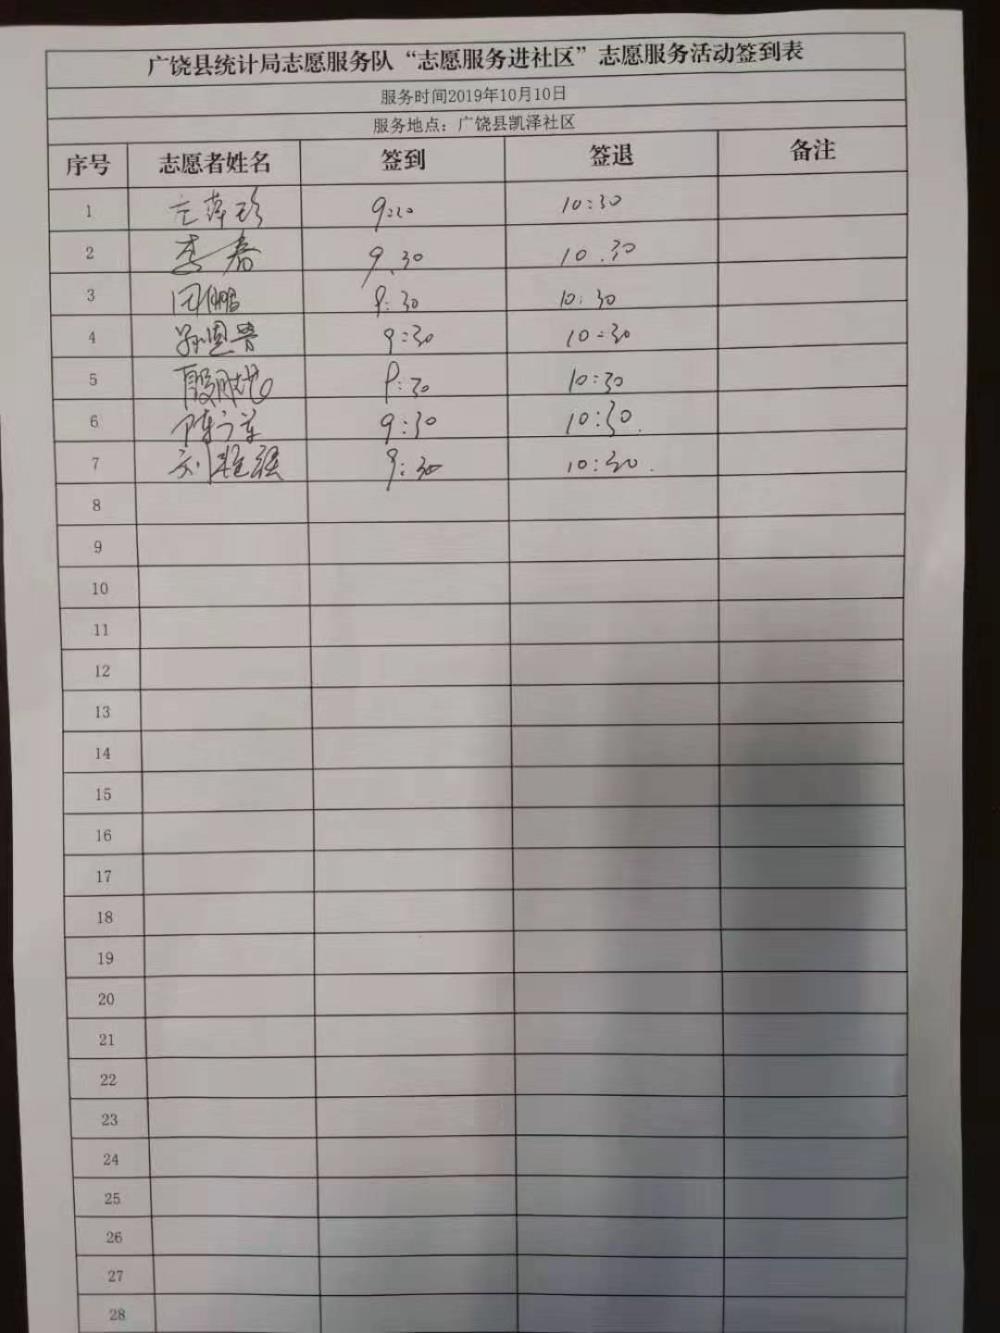 广饶县统计局志愿服务队“志愿服务进社区”志愿服务活动签到表
服务时间2019年10月10日
服务地点：广饶县凯泽社区
序号 志愿者姓名 签到 签退 备注
1 9:20 10:30
2 李春 9.30 10.30
3 9:30 10:30
4 9:30 10:30
5 9:30 10:30
6 9:30 10:30.
7 9:30 10:30.
8
9
10
11
12
13
14
15
16
17
18
19
20
21
22
23
24
25
26
27
28